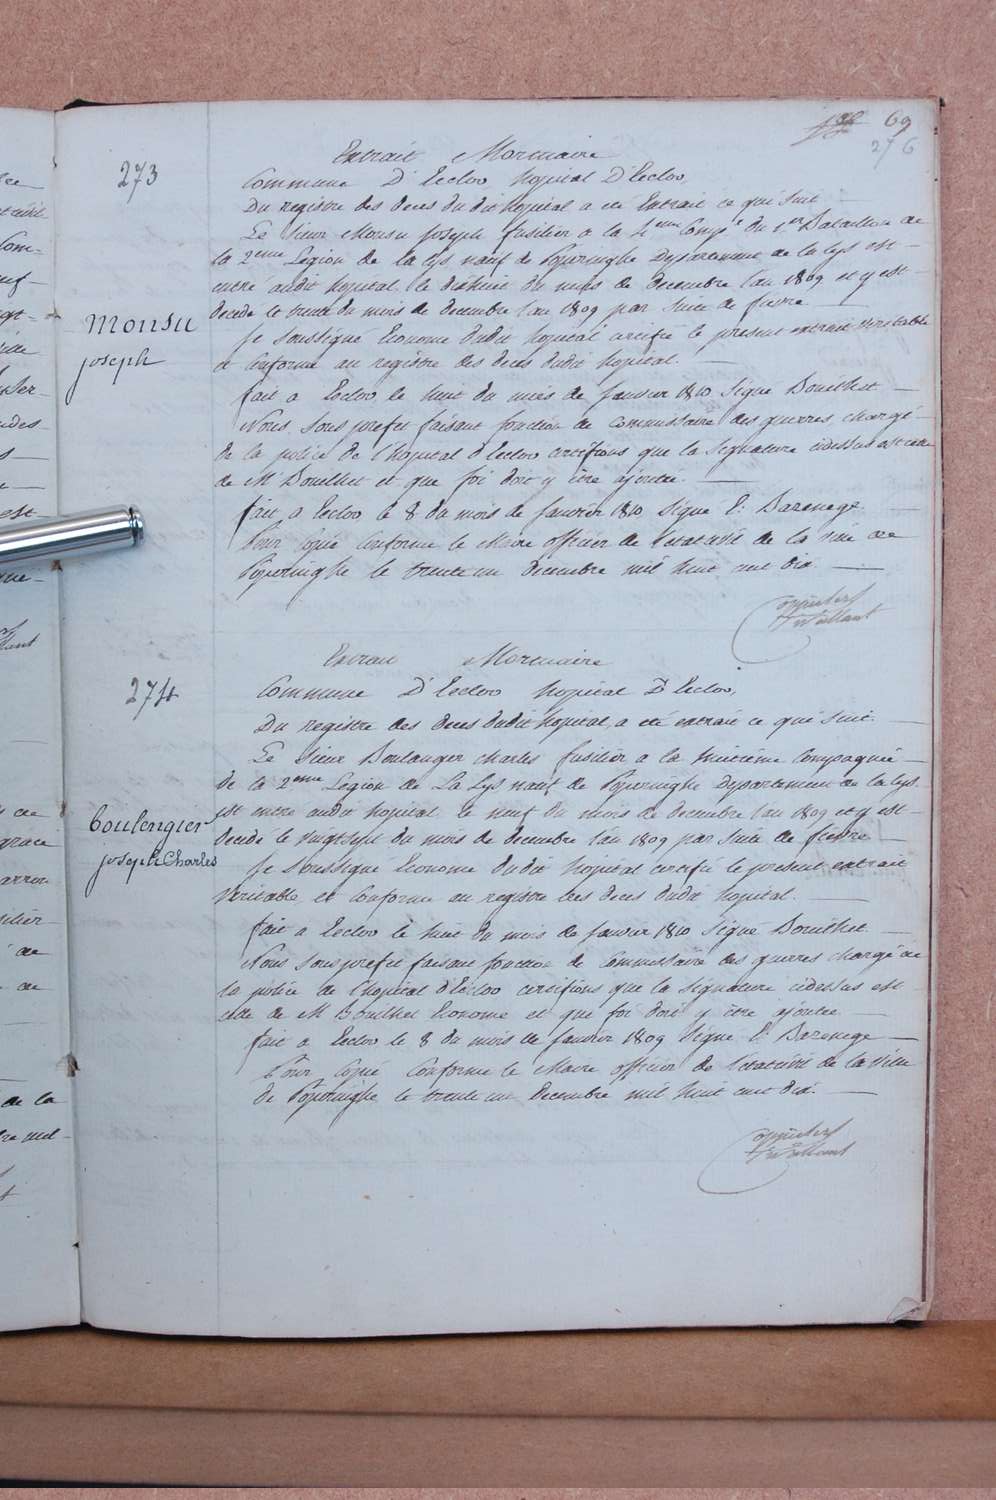 69
276
273
Extrait Mortuaire
Commune D'Eecloo hopital D'Eecloo,
Du registre des deces du dit hopital a été Extrait ce qui suit
Le Sieur Monsu Joseph fusilier a la 4eme Compe du 1er Bataillon de
la 2eme Légion de la Lys natif de Poperinghe Departement de la lys est
entré audit hopital le dixhuit du mois de decembre l'an 1809 et y est
decedé le trente du mois de decembre l'an 1809 par suite de fievre
Monsu
joseph
Je Soussigné Econome dudit hopital certifie le présent extrait veritable
et Conforme au registre des deces dudit hopital.
fait a Eecloo le huit du mois de Janvier 1810 Signé Bouilhet
Nous Sous prefet faisant fonction de Commissaire des guerres, chargé
de la police de l'hopital d'Eecloo certifions que la Signature cidessus est celle
de Mr Bouilhet et que foi doit y être ajoutée.
fait a Eecloo le 8 du mois de Janvier 1810 Signé E: Bazenege
Pour copie Conforme le Maire officier de l'état civil de la ville de
Poperinghe le trente un Decembre mil huit cent dix.
274
Extrait Mortuaire
Commune D'Eecloo hopital D'Eecloo,
Du registre des deces dudit hopital, a été extrait ce qui suit.
Le Sieur Boulanger Charles fusilier a la huitième Compagnie
de la 2eme Légion de La Lys natif de Poperinghe Departement de la Lys.
est entré audit hopital le neuf du mois de decembre l'an 1809 et y est
decedé le vingt sept du mois de decembre l'an 1809 par suite de fievre
boulengier
joseph Charles
Je Soussigné Econome dudit hopital certifie le present extrait
veritable, et Conforme au registre des deces dudit hopital.
fait a Eecloo le huit du mois de Janvier 1810 Signé Bouilhet.
Nous Sous prefet faisant fonction de Commissaire des guerres chargé de
la police de l'hopital d'Eecloo certifions que la Signature cidessus est
celle de M Bouilhet Econome et que foi doit y être ajoutée
fait a Eecloo le 8 du mois de Janvier 1809 Signé E: Bazenege
Pour Copie Conforme le Maire officier de l'état civil de la ville
de Poperinghe le trente un decembre mil huit cent dix.